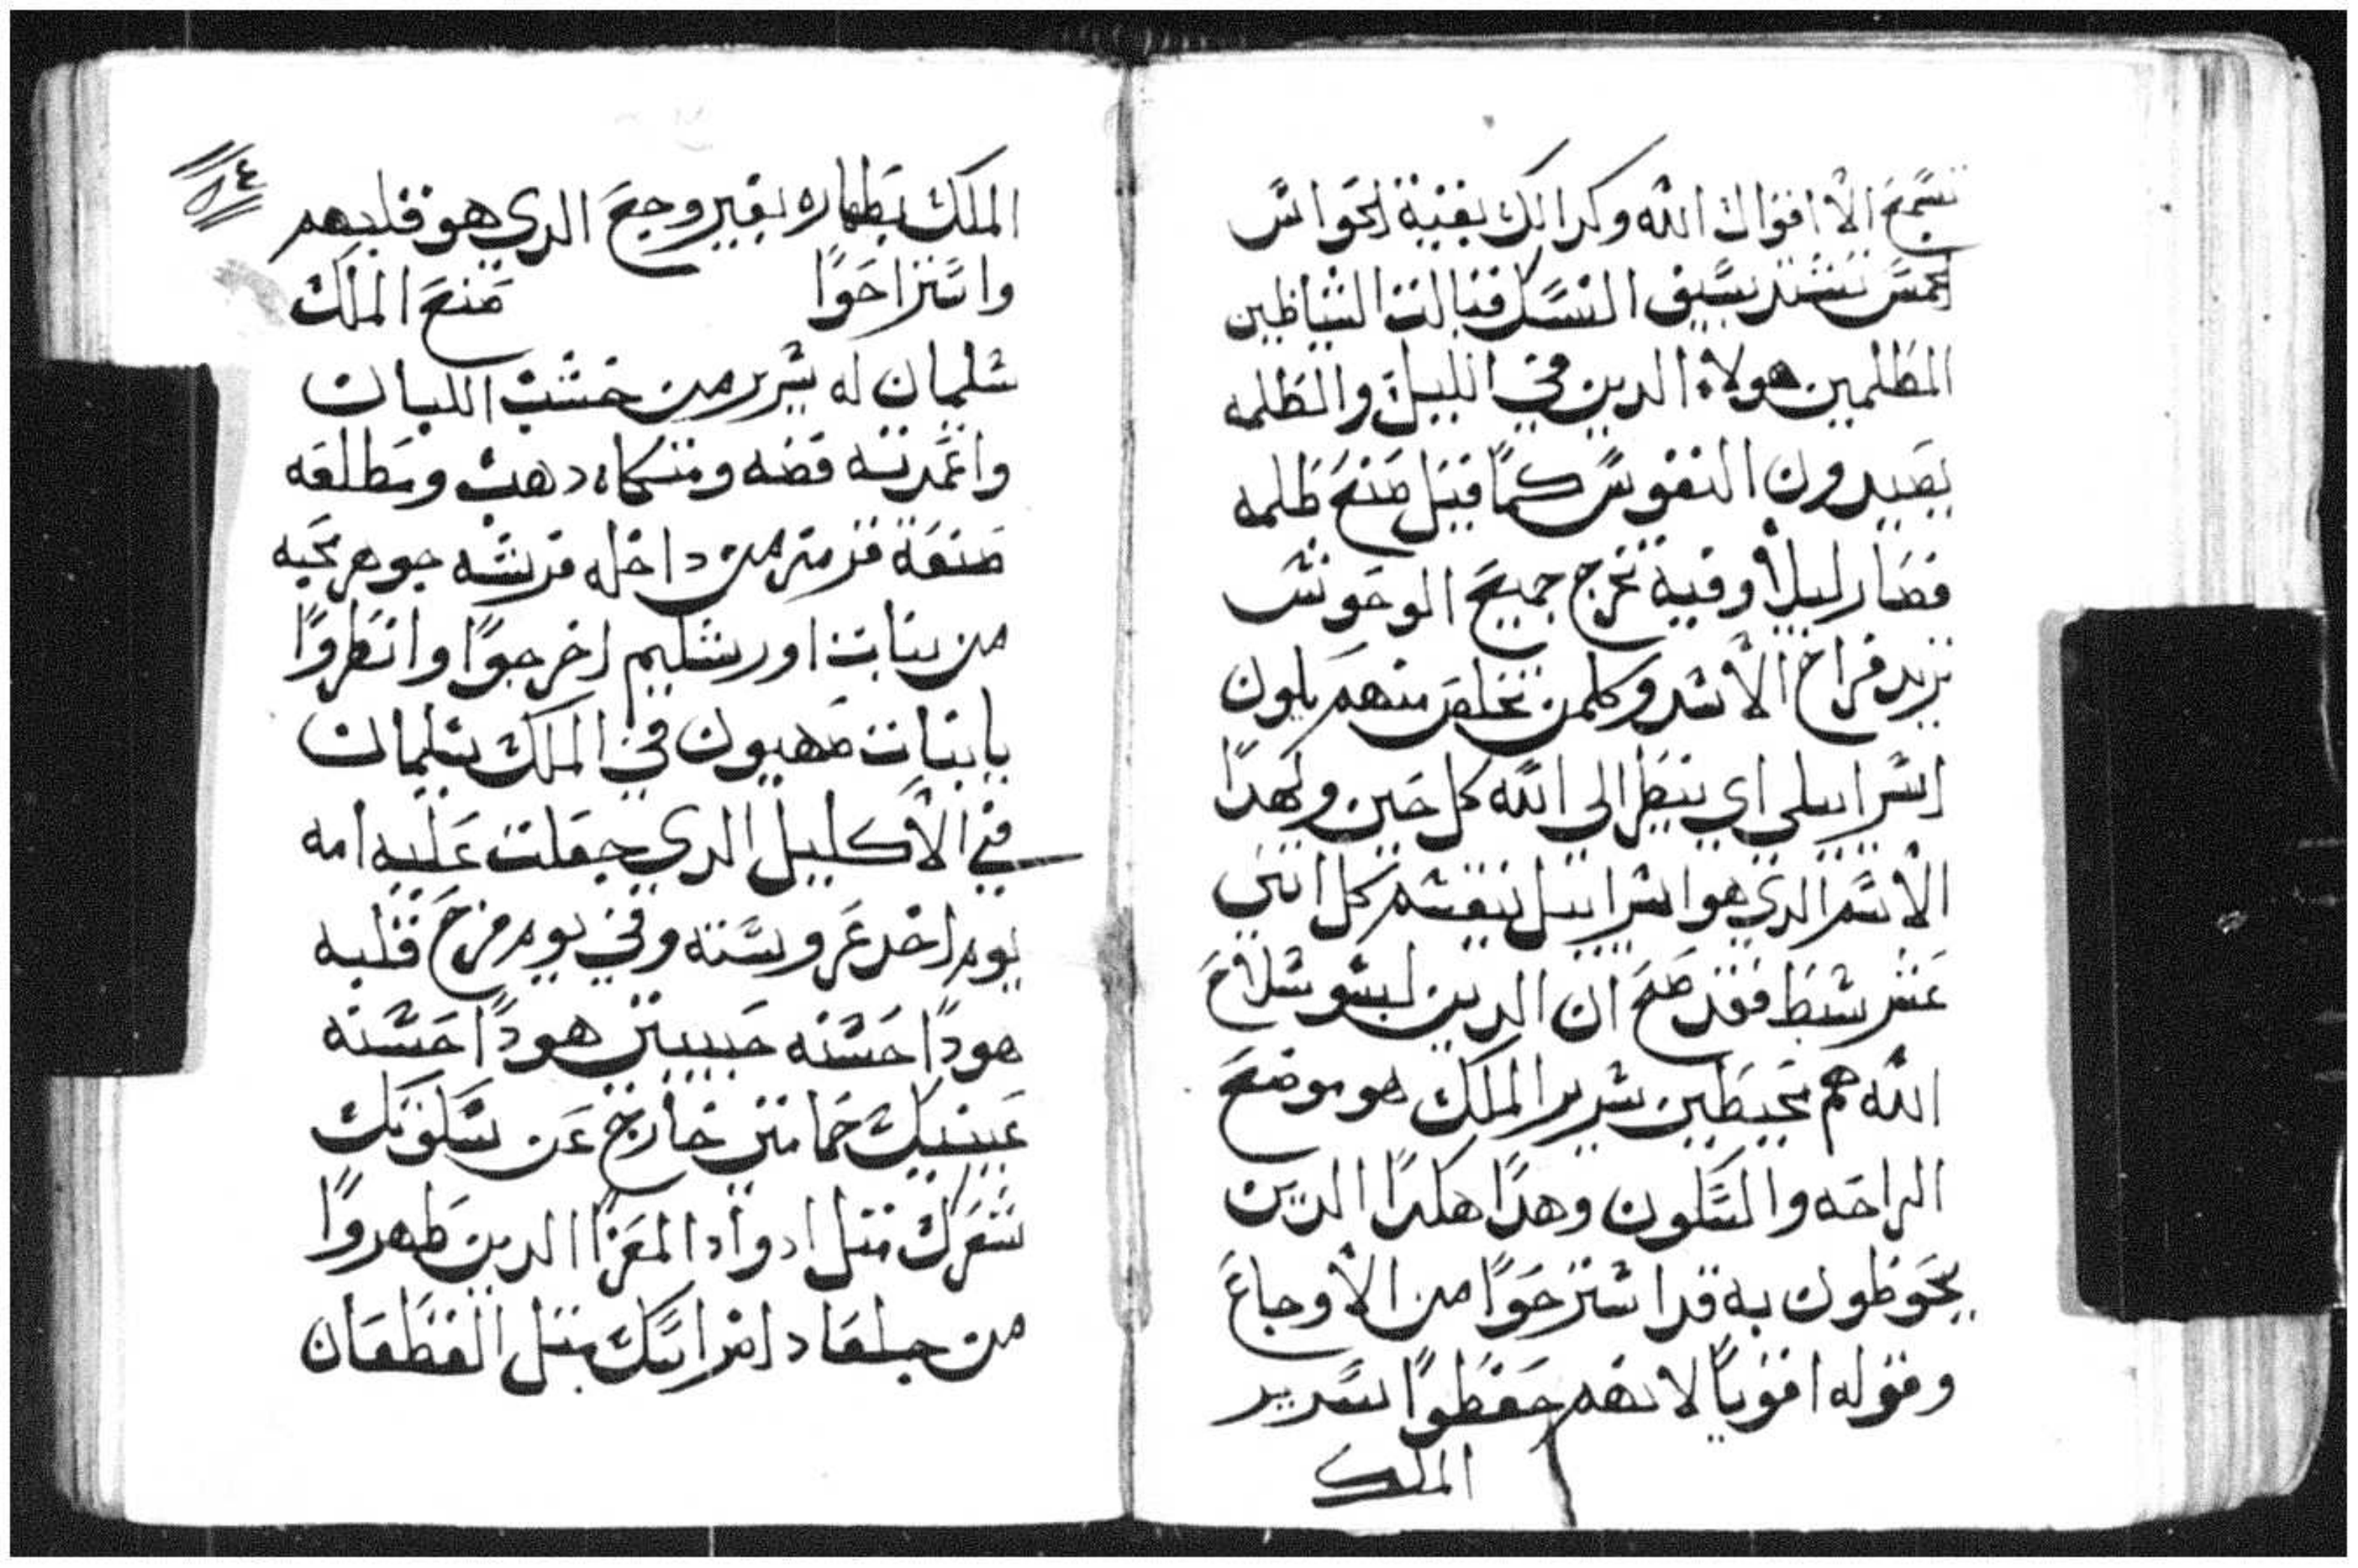 تسمع الا اقوال الله وكدالك بقية الحواس
الخمس تستند بسيف النسك قبالت الشياطين
المظلمين هولاء الدين في الليل والظلمه
يصيدون النفوس كما قيل صنع ظلمه
فصار ليلاً وفيه تخرج جميع الوحوش
تريد فراخ الأسد وكلمن تخلص منهم يكون
اسراييلي اي ينظر الى الله كل حين ولهدا
الأسم الدي هو اسراييل ينقسم كل اتني
عشر سبط فقد صح ان الدين لبسو سلاح
الله هم محيطين بسرير الملك هو موضع
الراحه والسكون وهدا هكدا الدين
يحوطون به قد استرحوا من الأوجاع
وقوله اقوياً لانهم حفظوا سرير
الملك
٨٤
الملك بطهاره بغير وجع الدي هو قلبهم
واستراحوا صنع الملك
سليمان له سرير من خشب اللبان
واعمدته فضه ومتكاه دهب ومطلعه
صنعة قرمز من داخله فرشه جوهر محبه
من بنات اورشليم اخرجوا وانظروا
يا بنات صهيون في الملك سليمان
في الأكليل الدي جعلت عليه امه
يوم اخد عروسته وفي يوم فرح قلبه
هودا حسنه حبيبتي هودا حسنه
عينيك حمامتين خارج عن سكوتك
شعرك متل ادواد المعزا الدين ظهروا
من جلعاد اضراسك متل القطعان